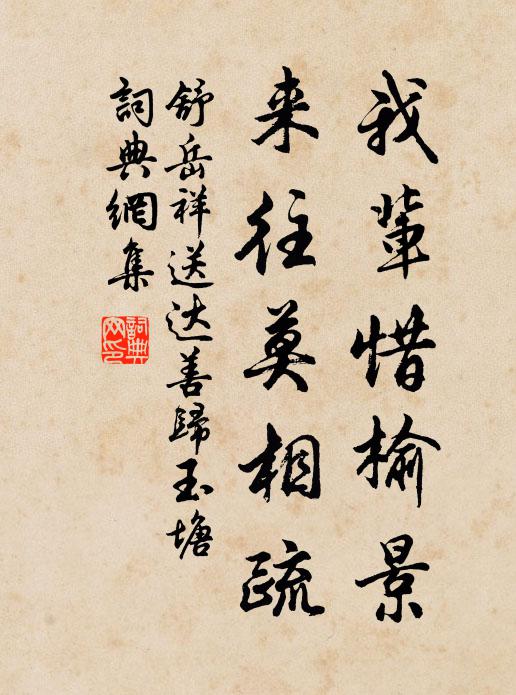 我輩惜榆景
来往莫相疏
舒岳祥送达善歸玉塘
詞典網集
詞典
网印